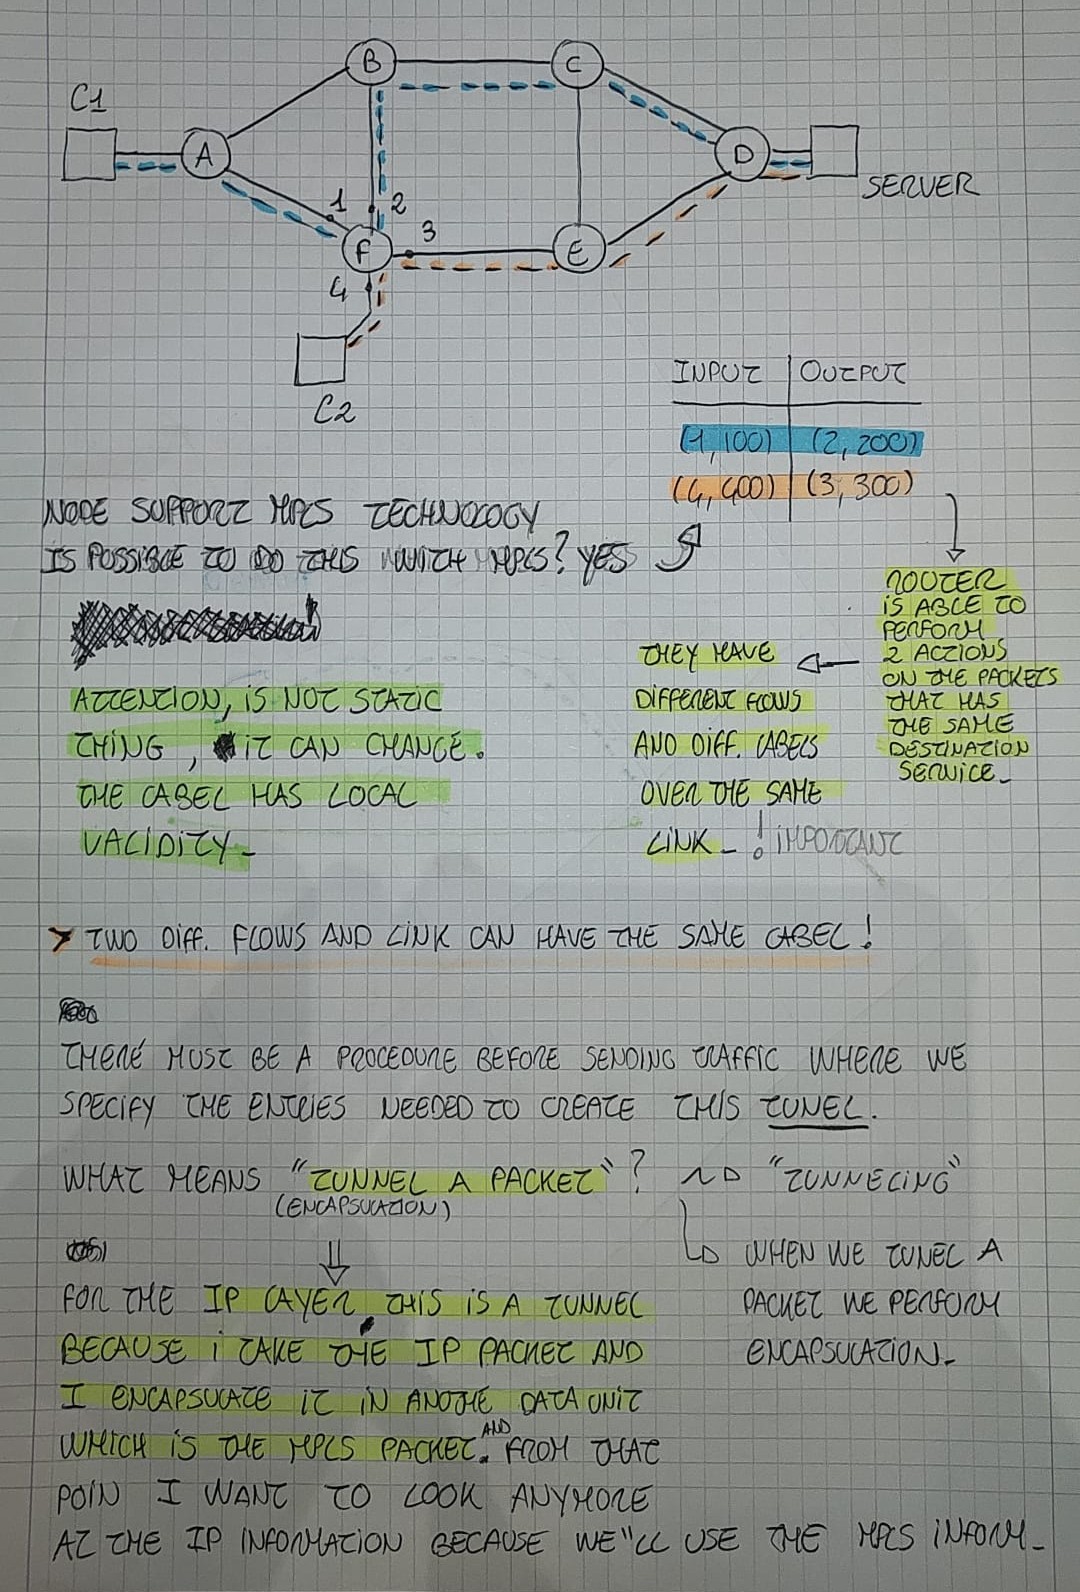 B
C
C1
A
D
SERVER
1
2
3
F
E
4
C2
INPUT | OUTPUT
(1,100) (2,200)
(4,400) (3,300)
NODE SUPPORT MPLS TECHNOLOGY
IS POSSIBLE TO DO THIS WITCH MPLS? YES
ROUTER
IS ABLE TO
PERFORM
2 ACTIONS
ON THE PACKETS
THAT HAS
THE SAME
DESTINATION
SERVICE_
THEY HAVE
DIFFERENT FLOWS
AND DIFF. LABELS
OVER THE SAME
LINK_ ! IMPORTANT
ATTENTION, IS NOT STATIC
THING, IT CAN CHANGE.
THE LABEL HAS LOCAL
VALIDITY_
> TWO DIFF. FLOWS AND LINK CAN HAVE THE SAME LABEL!
THERE MUST BE A PROCEDURE BEFORE SENDING TRAFFIC WHERE WE
SPECIFY THE ENTRIES NEEDED TO CREATE THIS TUNEL.
WHAT MEANS "TUNNEL A PACKET"? "TUNNELING"
(ENCAPSULATION)
WHEN WE TUNEL A
PACKET WE PERFORM
ENCAPSULATION_
FOR THE IP LAYER THIS IS A TUNNEL
BECAUSE I TAKE THE IP PACKET AND
I ENCAPSULATE IT IN ANOTHE DATA UNIT
WHICH IS THE MPLS PACKET. AND FROM THAT
POIN I WANT TO LOOK ANYMORE
AT THE IP INFORMATION BECAUSE WE"LL USE THE MPLS INFORM_